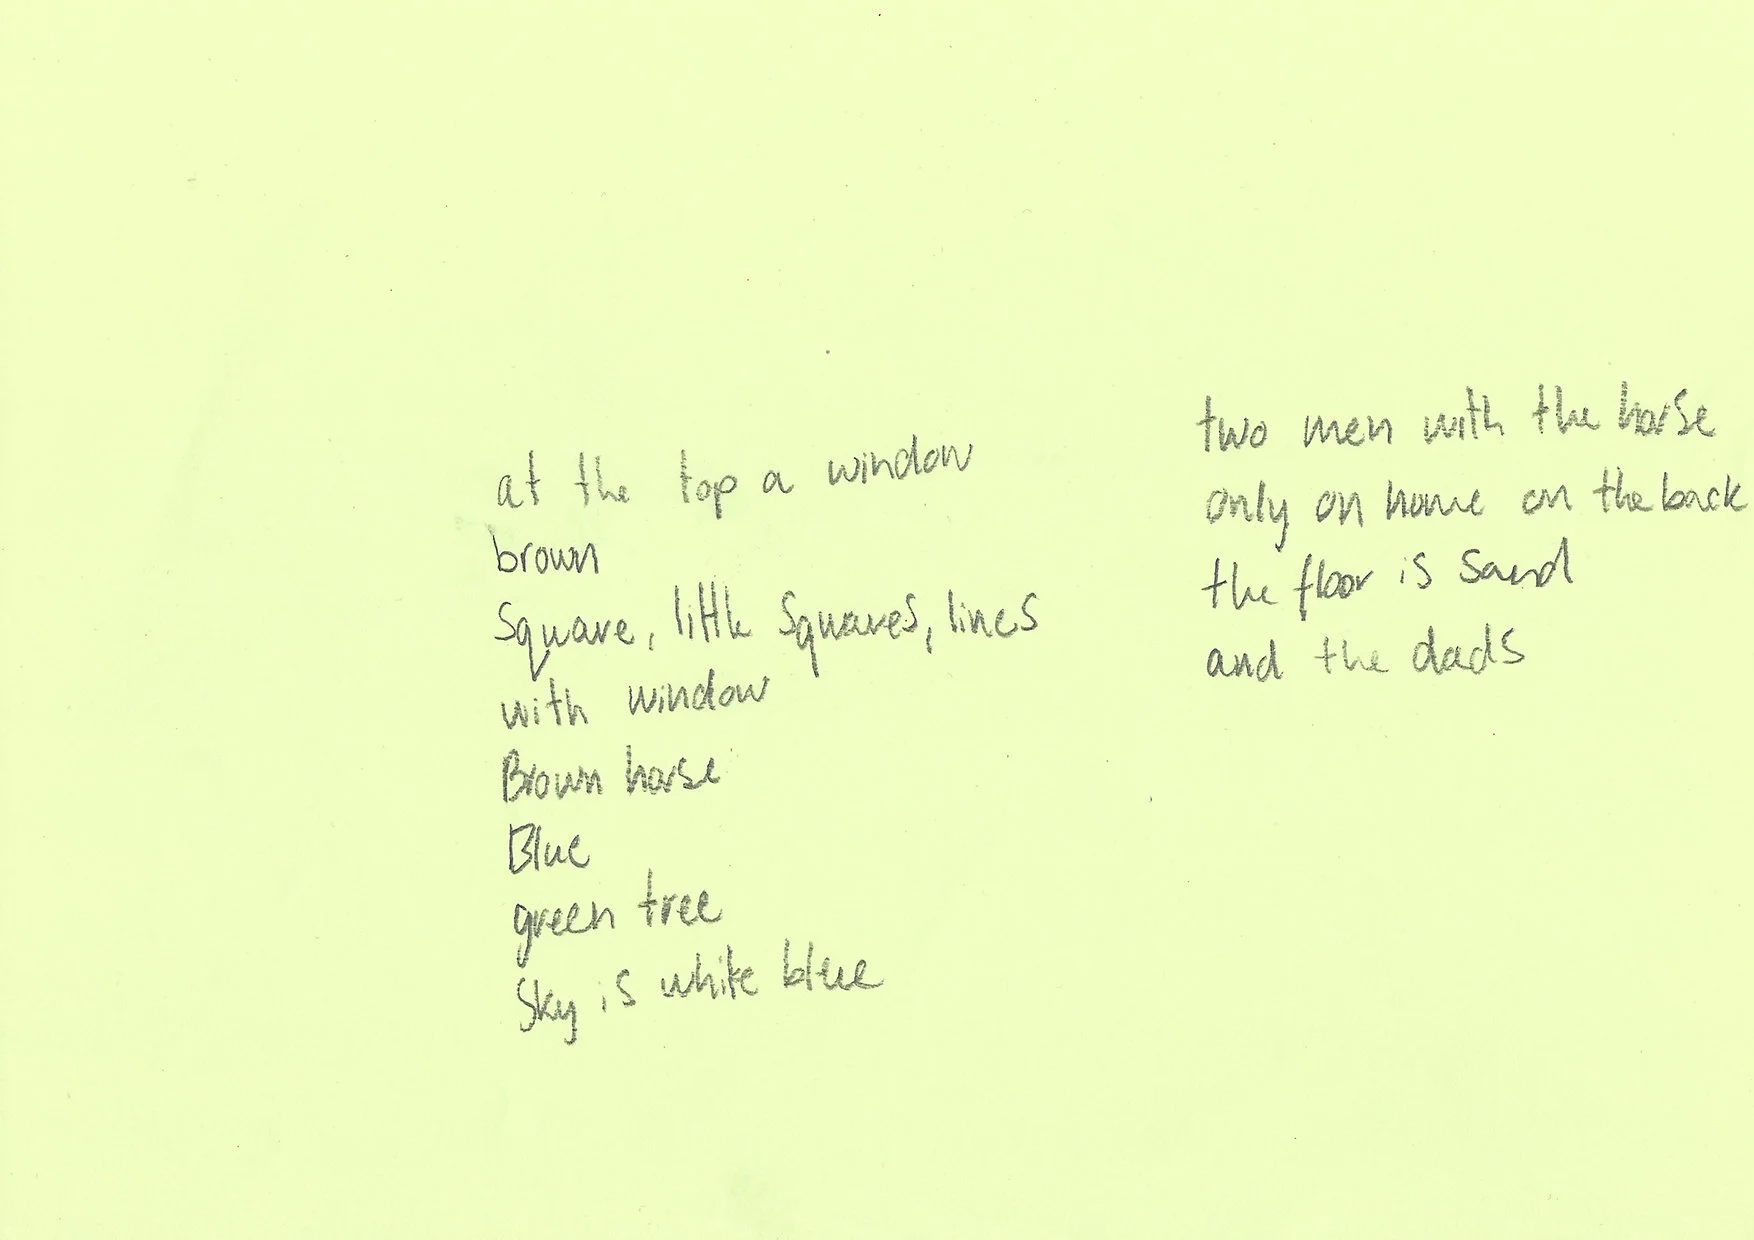 at the top a window
brown
Square, little squares, lines
with window
Brown horse
Blue
green tree
Sky is white blue
two men with the horse
only on home on the back
the floor is sand
and the dads